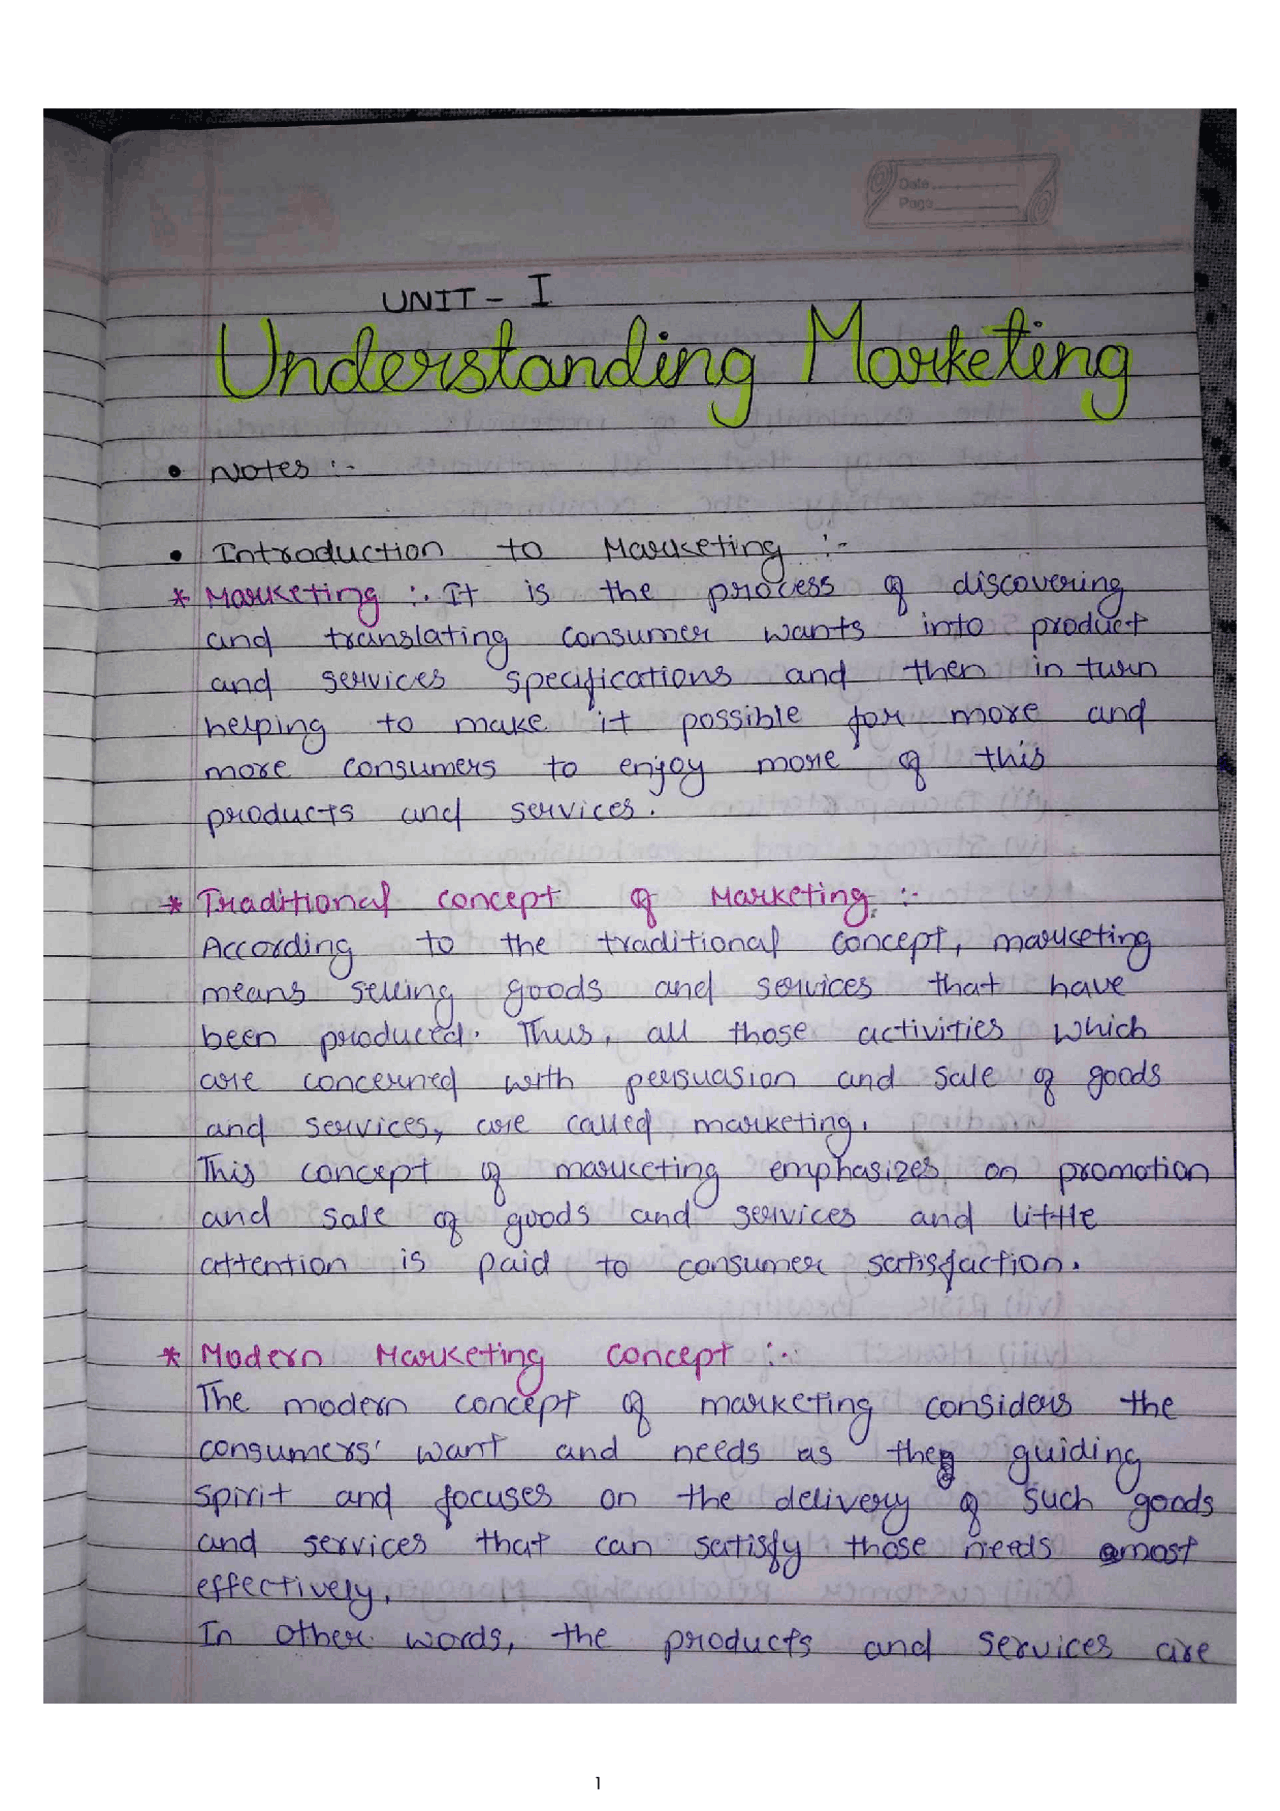 Date
Page
UNIT - I
Understanding Marketing
• Notes :-
• Introduction to Marketing :-
* Marketing :. It is the process of discovering
and translating consumer wants into product
and services specifications and then in turn
helping to make it possible for more and
more consumers to enjoy more of this
products and services.
* Traditional concept of Marketing :-
According to the traditional concept, marketing
means selling goods and services that have
been produced. Thus, all those activities which
are concerned with persuasion and sale of goods
and services, are called marketing.
This concept of marketing emphasizes on promotion
and sale of goods and services and little
attention is paid to consumer satisfaction.
* Modern Marketing concept :-
The modern concept of marketing considers the
consumers' want and needs as the guiding
spirit and focuses on the delivery of such goods
and services that can satisfy those needs most
effectively.
In other words, the products and services are
1